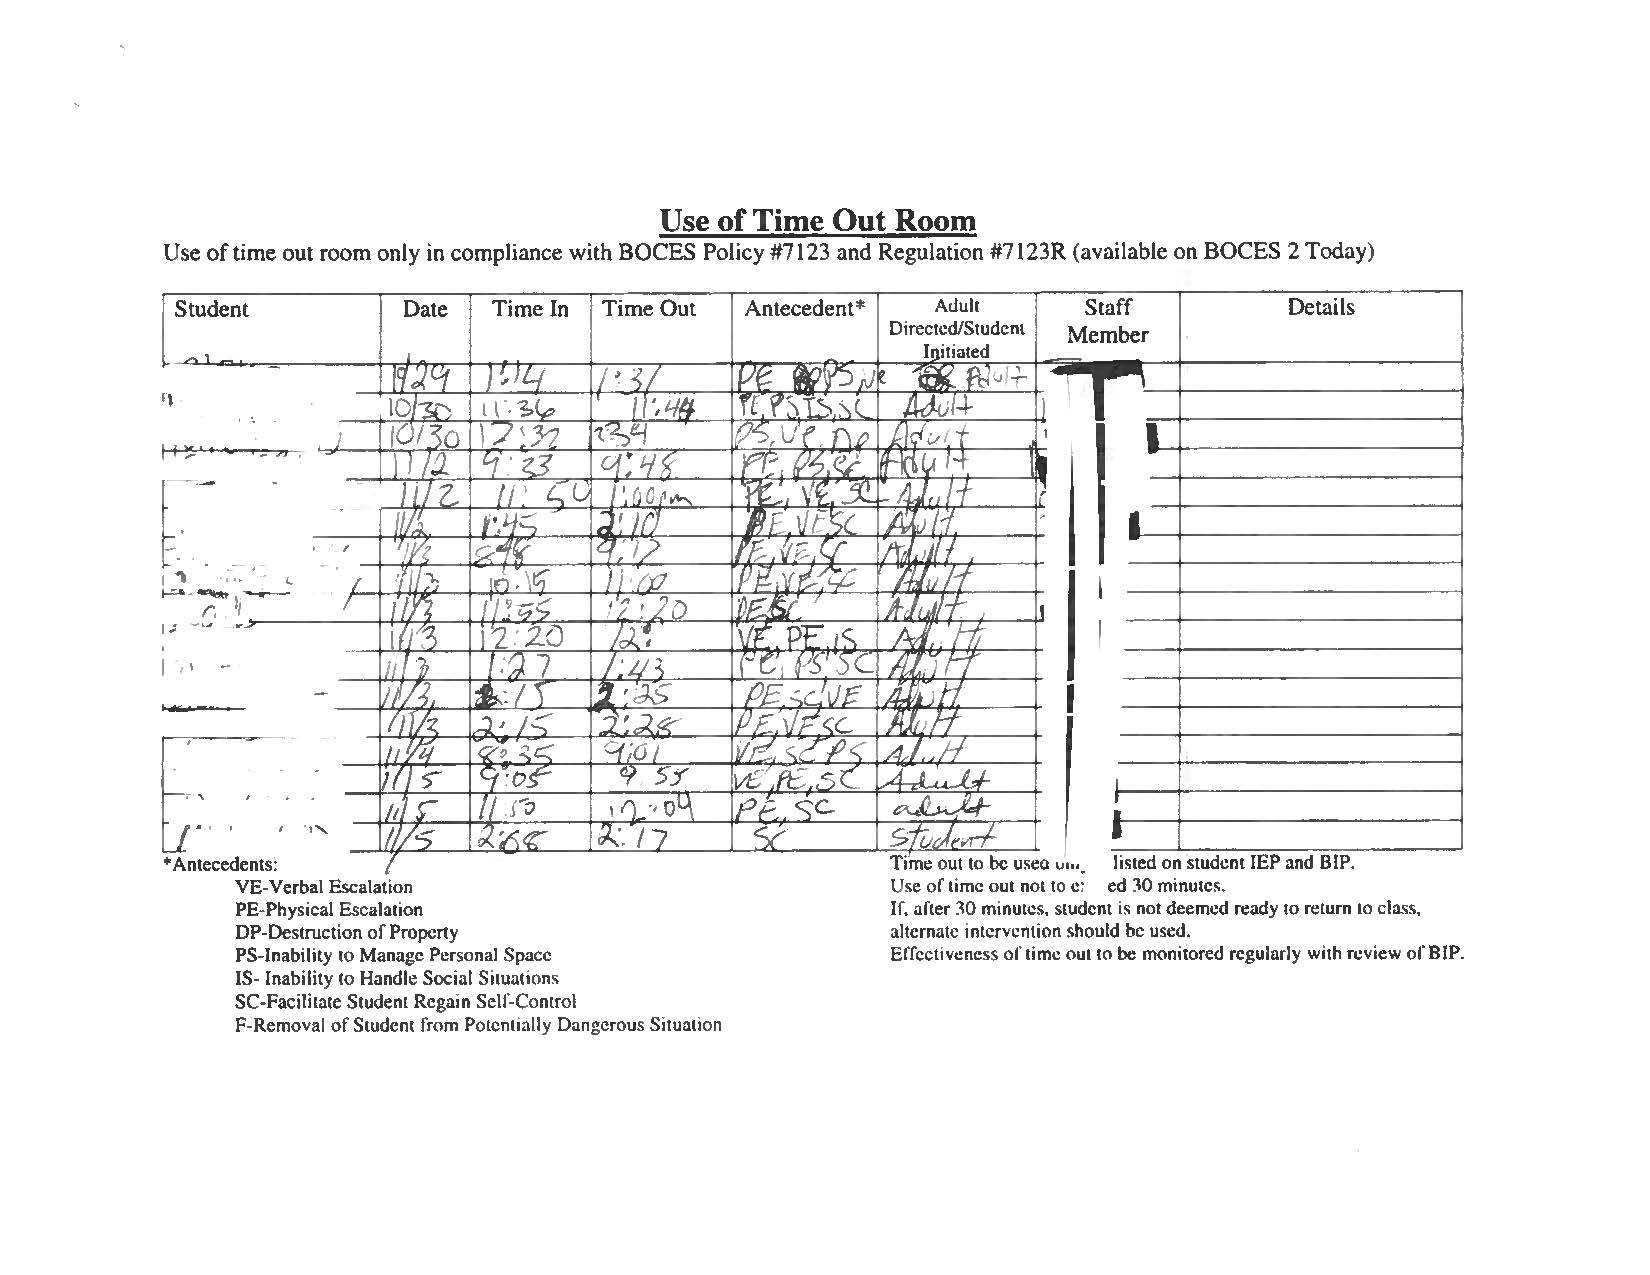 Use of Time Out Room
Use of time out room only in compliance with BOCES Policy #7123 and Regulation #7123R (available on BOCES 2 Today)
Student Date Time In Time Out Antecedent* Adult Directed/Student Initiated Staff Member Details
10/29 1:14 1:31 PE PS Adult
10/30 11:36 11:44 PE, PS, IS, SC Adult
10/30 12:32 PS, VE, DP Adult
11/2 9:33 9:48 PE, PS, SC Adult
11/2 11:50 1:00pm PE, VE, SC Adult
11/2 1:45 2:10 PE, VE SC Adult
11/3 8:48 9:12 PE, VE, SC Adult
11/3 10:15 11:00 PE, VE, SC Adult
11/3 11:55 12:20 PE SC Adult
11/3 12:20 12: VE, PE, IS Adult
11/3 1:27 1:43 PE, PS, SC Adult
11/3 2:15 2:25 PE, SC, VE Adult
11/3 2:15 2:28 PE, VE, SC Adult
11/4 8:35 9:01 VE, SC PS Adult
11/5 9:05 9 55 VE, PE, SC Adult
11/5 11:50 12:04 PE, SC adult
11/5 2:17 SC Student
*Antecedents:
VE-Verbal Escalation
PE-Physical Escalation
DP-Destruction of Property
PS-Inability to Manage Personal Space
IS- Inability to Handle Social Situations
SC-Facilitate Student Regain Self-Control
F-Removal of Student from Potentially Dangerous Situation
Time out to be used listed on student IEP and BIP.
Use of time out not to ed 30 minutes.
If, after 30 minutes, student is not deemed ready to return to class,
alternate intervention should be used.
Effectiveness of time out to be monitored regularly with review of BIP.